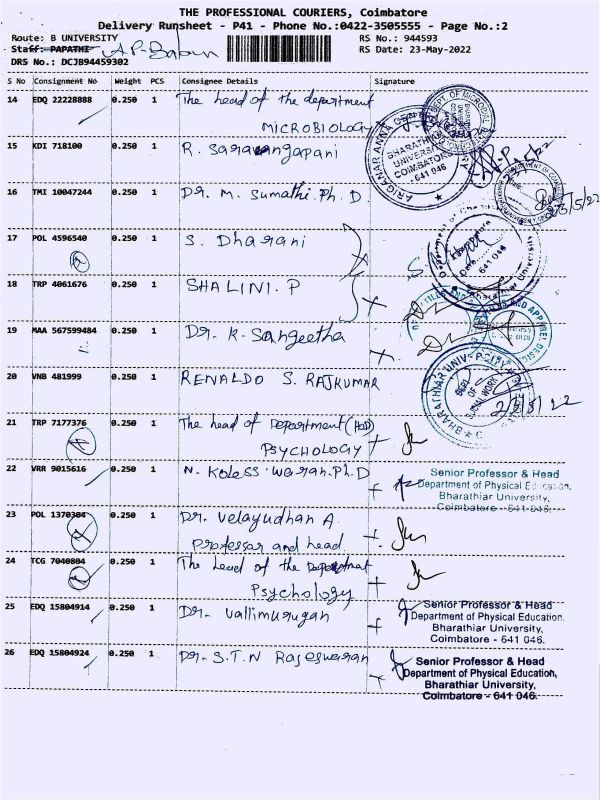 THE PROFESSIONAL COURIERS, Coimbatore
Delivery Runsheet - P41 - Phone No.:0422-3505555 - Page No.:2
Route: B UNIVERSITY
RS No.: 944593
Staff: PAPATHI A.P-Babu
RS Date: 23-May-2022
DRS No.: DCJB94459302
S No Consignment No Weight PCS Consignee Details Signature
14 EDQ 22228888 0.250 1 The head of the department
MICROBIOLOGY
15 KDI 718100 0.250 1 R. Saravangapani
16 TMI 10047244 0.250 1 Dr. M. Sumathi. Ph. D.
17 POL 4596540 0.250 1 S. Dharani
18 TRP 4061676 0.250 1 SHALINI. P
19 MAA 567599484 0.250 1 Dr. K. Sangeetha
20 VNB 481999 0.250 1 RENALDO S. RAJKUMAR
21 TRP 7177376 0.250 1 The head of Department (HOD)
PSYCHOLOGY
22 VRR 9015616 0.250 1 N. Koleswaran. Ph.D
Senior Professor & Head
Department of Physical Education,
Bharathiar University,
Coimbatore - 641-046.
23 POL 1370304 0.250 1 Dr. Velayudhan A.
Professor and head.
24 TCG 7040804 0.250 1 The head of the Department
Psychology
25 EDQ 15804914 0.250 1 Dr. Vallimurugan
Senior Professor & Head
Department of Physical Education,
Bharathiar University,
Coimbatore - 641 046.
26 EDQ 15804924 0.250 1 Dr. S.T.N Rajeswaran
Senior Professor & Head
Department of Physical Education,
Bharathiar University,
Coimbatore - 641 046.
ARIGNAR ANNA
BHARATHIAR
UNIVERSITY
COIMBATORE
- 641 046
DEPT. OF MICROBIAL
Bharathiar University
641 046
AND APPAREL DESIGN
BHARATHIAR UNIVERSITY
DEPT.
OF
SOCIAL WORK